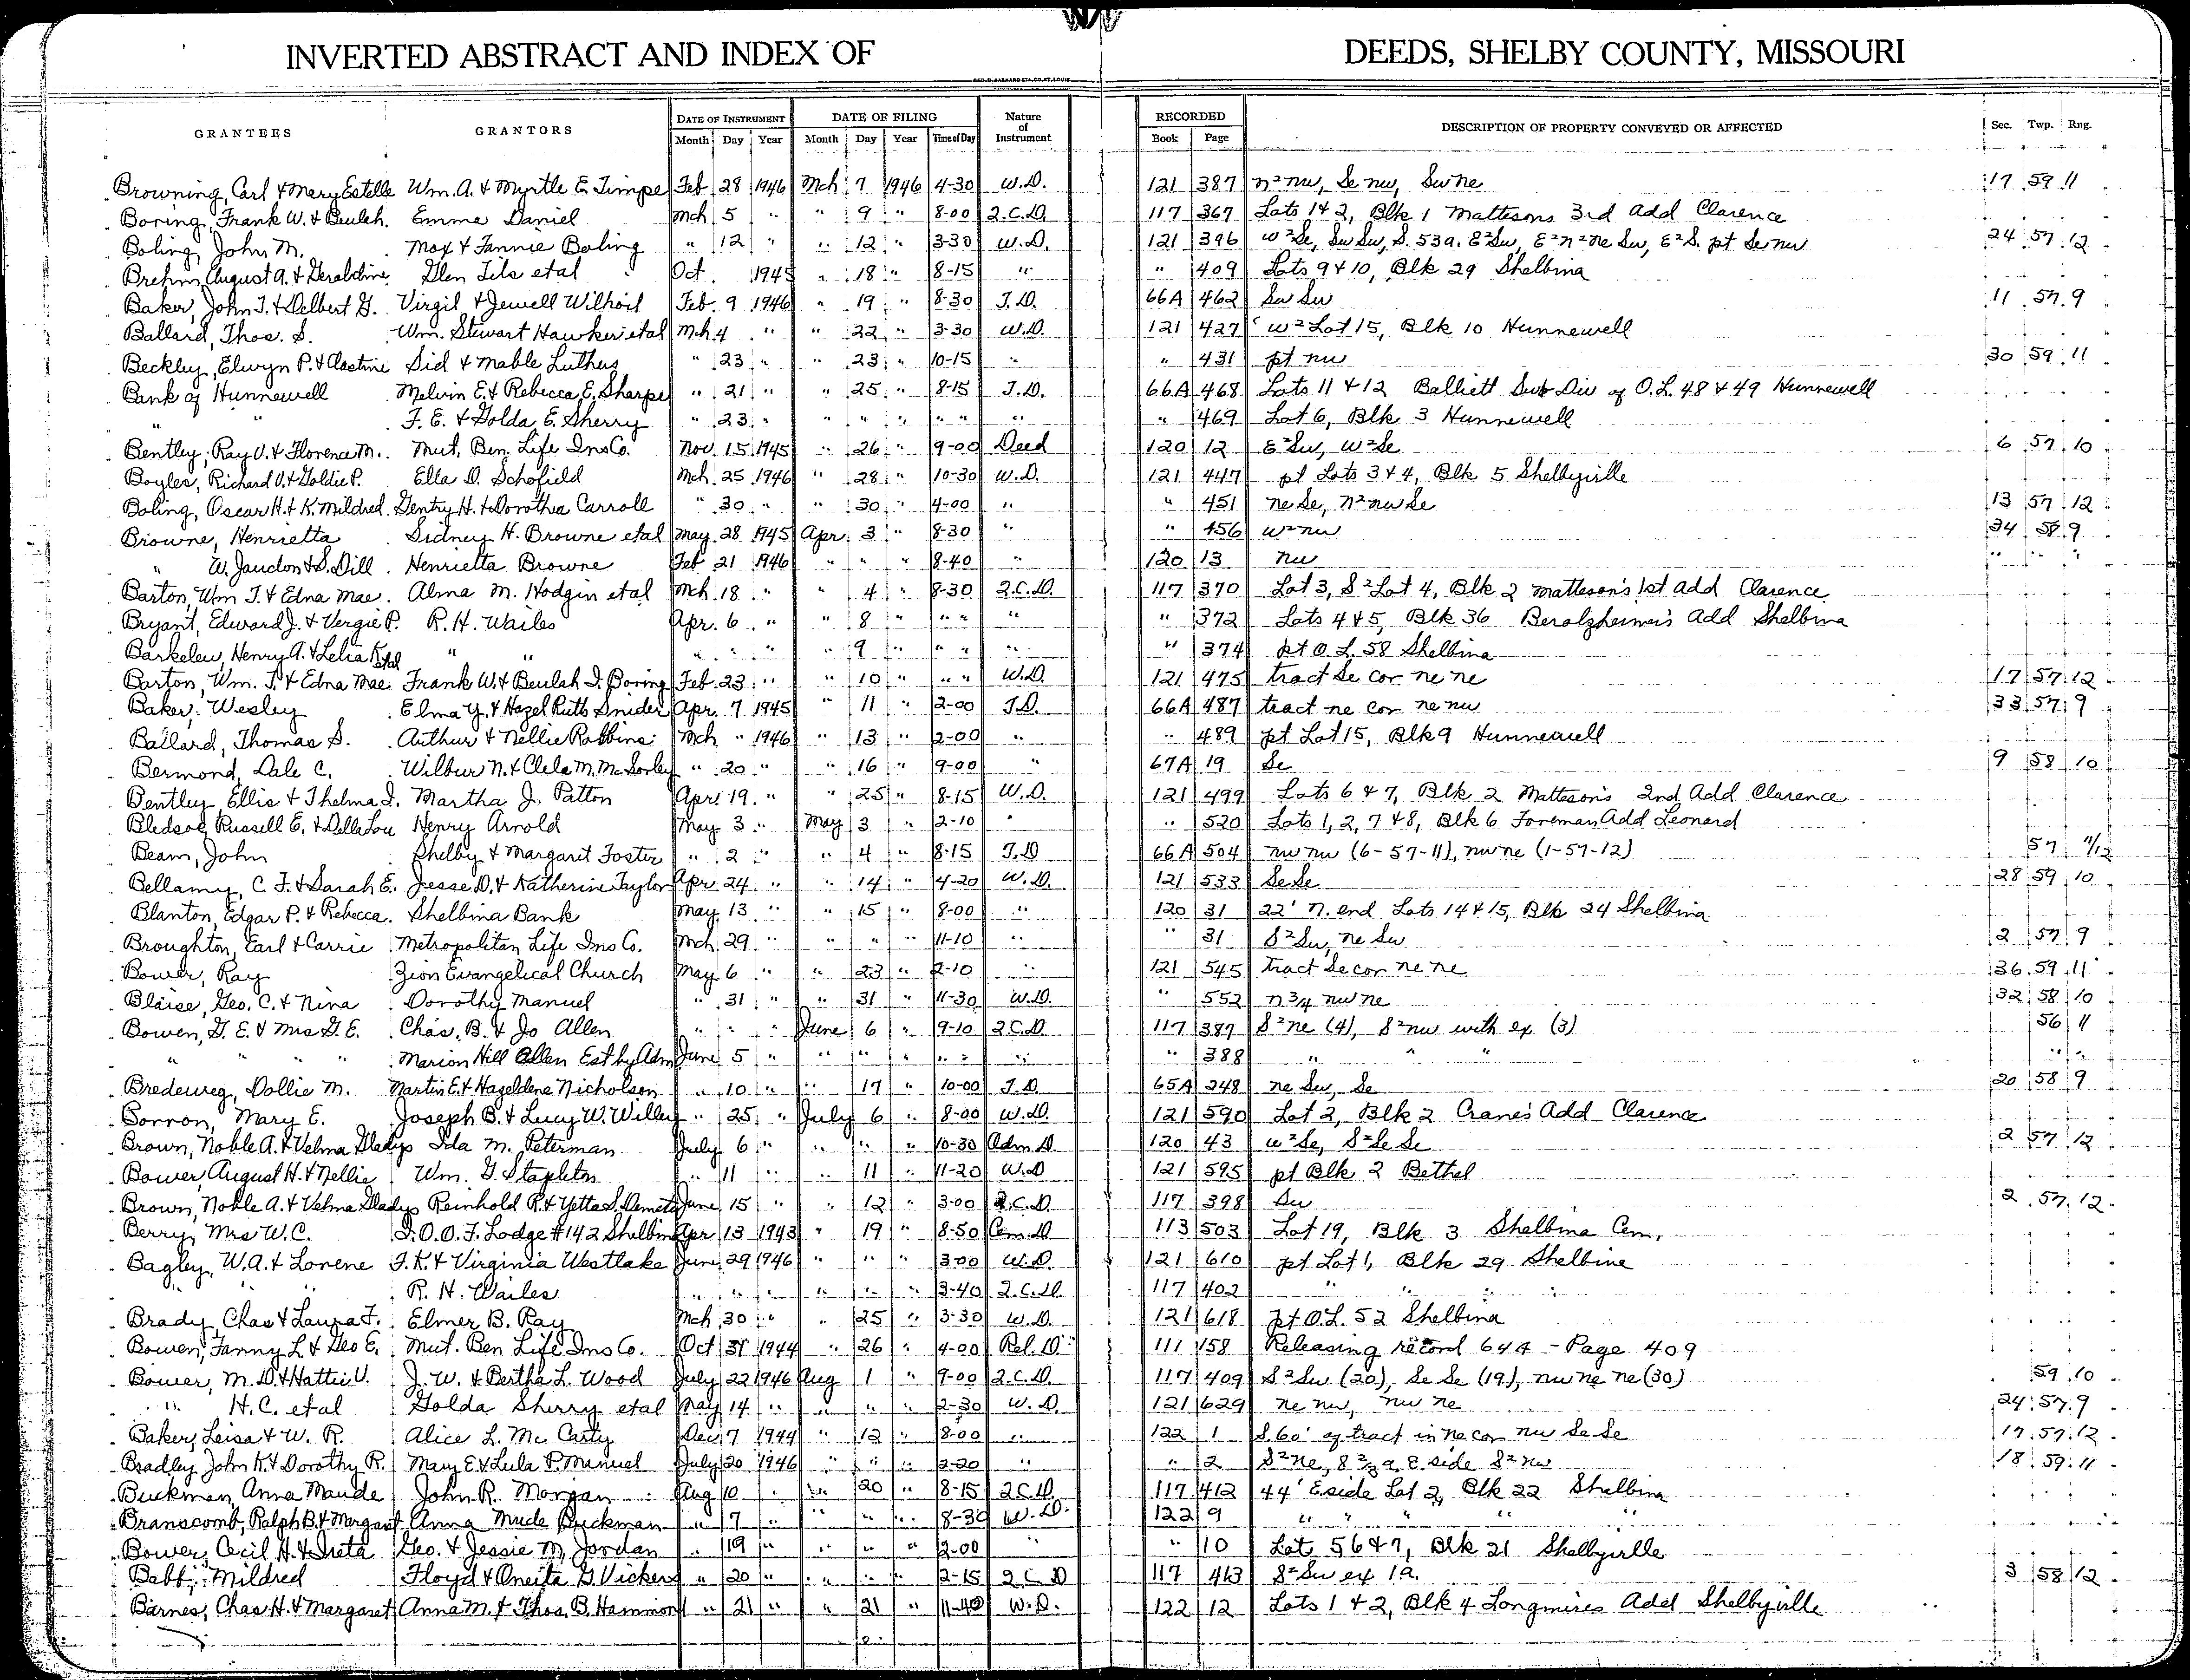 INVERTED ABSTRACT AND INDEX OF DEEDS, SHELBY COUNTY, MISSOURI
GRANTEES GRANTORS DATE OF INSTRUMENT DATE OF FILING Nature of Instrument RECORDED DESCRIPTION OF PROPERTY CONVEYED OR AFFECTED Sec. Twp. Rng.
Month Day Year Month Day Year Time of Day Book Page
Browning, Carl & Mary Estelle Wm. A. & Myrtle E. Timpe Feb 28 1946 Mch 7 1946 4-30 W.D. 121 387 n²nw, Se nw, Swne 17 59 11
Boring, Frank W. & Beulah. Emma Daniel Mch 5 " " 9 " 8-00 2.C.D. 117 367 Lots 1 & 2, Blk 1 Mattesons 3rd Add Clarence
Boling, John M. Max & Fannie Boling " 12 " " 12 " 3-30 W.D. 121 396 w²Se, SwSw, S. 53a. E²Sw, E²n²ne Sw, E²S. pt Se nw 24 57 12
Brehm, August A. & Geraldine Glen Tils etal Oct. 1945 " 18 " 8-15 " " 409 Lots 9 & 10, Blk 29 Shelbina
Baker, John T. & Delbert G. Virgil & Jewell Wilhoit Feb. 9 1946 " 19 " 8-30 T.D. 66A 462 Sw Sw 11 57 9
Ballard, Thos. S. Wm. Stewart Hawker etal Mch 4 " " 22 " 3-30 W.D. 121 427 w² Lot 15, Blk 10 Hunnewell
Beckley, Elwyn P. & Clastine Sid & Mable Luthus " 23 " " 23 " 10-15 " " 431 pt nw 30 59 11
Bank of Hunnewell Melvin E. & Rebecca E. Sharpe " 21 " " 25 " 8-15 T.D. 66A 468 Lots 11 & 12 Balliett Sub Div of O.L. 48 & 49 Hunnewell
" " F. E. & Golda E. Sherry " 23 " " " " " " " " 469 Lot 6, Blk 3 Hunnewell
Bentley, Ray V. & Florence M. Mut. Ben. Life Ins Co. Nov. 15 1945 " 26 " 9-00 Deed 120 12 E²Sw, W²Se 6 57 10
Boyles, Richard V. & Goldie P. Ella D. Schofield Mch. 25 1946 " 28 " 10-30 W.D. 121 447 pt Lots 3 & 4, Blk 5 Shelbyville
Boling, Oscar H. & K. Mildred Gentry H. & Dorothea Carroll " 30 " " 30 " 4-00 " " 451 ne Se, n²nw Se 13 57 12
Browne, Henrietta Sidney H. Browne etal May 28 1945 Apr. 3 " 8-30 " " 456 w²nw 34 58 9
" W. Jaudon & S. Dill Henrietta Browne Feb 21 1946 " " " 8-40 " 120 13 nw " " "
Barton, Wm T. & Edna Mae. Alma M. Hodgin etal Mch 18 " " 4 " 8-30 2.C.D. 117 370 Lot 3, S² Lot 4, Blk 2 Matteson's 1st Add Clarence
Bryant, Edward J. & Vergie P. R. H. Wailes Apr. 6 " " 8 " " " " " 372 Lots 4 & 5, Blk 36 Beralzheimer's Add Shelbina
Barkelew, Henry A. & Lelia K. etal " " " " " " 9 " " " " " 374 pt O.L. 58 Shelbina
Barton, Wm. T. & Edna Mae Frank W. & Beulah I. Boring Feb 23 " " 10 " " " W.D. 121 475 tract Se cor ne ne 17 57 12
Baker, Wesley Elma Y. & Hazel Ruth Snider Apr. 7 1945 " 11 " 2-00 T.D. 66A 487 tract ne cor ne nw 33 57 9
Ballard, Thomas S. Arthur & Nellie Robbins Mch " 1946 " 13 " 2-00 " " 489 pt Lot 15, Blk 9 Hunnewell
Bermond, Dale C. Wilbur N. & Clela M. McSorley " 20 " " 16 " 9-00 " 67A 19 Se 9 58 10
Bentley, Ellis & Thelma I. Martha J. Patton Apr. 19 " " 25 " 8-15 W.D. 121 499 Lots 6 & 7, Blk 2 Matteson's 2nd Add Clarence
Bledsoe, Russell E. & Della Lou Henry Arnold May 3 " May 3 " 2-10 " " 520 Lots 1, 2, 7 & 8, Blk 6 Foreman Add Leonard
Beam, John Shelby & Margaret Foster " 2 " " 4 " 8-15 T.D 66A 504 nw nw (6-57-11), nw ne (1-57-12) 57 11/12
Bellamy, C. F. & Sarah E. Jesse D. & Katherine Taylor Apr. 24 " " 14 " 4-20 W.D. 121 533 SeSe 28 59 10
Blanton, Edgar P. & Rebecca. Shelbina Bank May 13 " " 15 " 8-00 " 120 31 22' N. end Lots 14 & 15, Blk 24 Shelbina
Broughton, Earl & Carrie Metropolitan Life Ins Co. Mch 29 " " " " 11-10 " " 31 S²Sw, ne Sw 2 57 9
Bower, Ray Zion Evangelical Church May 6 " " 23 " 2-10 " 121 545 tract Se cor ne ne 36 59 11
Blaise, Geo. C. & Nina Dorothy Manuel " 31 " " 31 " 11-30 W.D. " 552 n 3/4 nw ne 32 58 10
Bowen, G. E. & Mrs G. E. Chas. B. & Jo Allen " " " June 6 " 9-10 2.C.D. 117 387 S²ne (4), S²nw with ex (3) 56 11
" " " " Marion Hill Allen Est by Adm June 5 " " " " " " " 388 " " " " "
Bredeweg, Dollie M. Martin E. & Hazeldene Nicholson " 10 " " 17 " 10-00 T.D. 65A 248 ne Sw, Se 20 58 9
Sorron, Mary E. Joseph B. & Lucy W. Willey " 25 " July 6 " 8-00 W.D. 121 590 Lot 2, Blk 2 Crane's Add Clarence
Brown, Noble A. & Velma Gladys Ida M. Peterman July 6 " " " " 10-30 Adm.D. 120 43 w²Se, S²Se Se 2 57 12
Bower, August H. & Nellie Wm. G. Stapleton " 11 " " 11 " 11-20 W.D 121 595 pt Blk 2 Bethel
Brown, Noble A. & Velma Gladys Reinhold R. & Yetta S. Demetz June 15 " " 12 " 3-00 2.C.D. 117 398 Sw 2 57 12
Berry, Mrs W.C. I.O.O.F. Lodge #142 Shelbina Apr 13 1943 " 19 " 8-50 Cem.D 113 503 Lot 19, Blk 3 Shelbina Cem.
Bagley, W.A. & Lorene F.K. & Virginia Westlake June 29 1946 " " " 3-00 W.D. 121 610 pt Lot 1, Blk 29 Shelbina
" " R. H. Wailes " " " " " " 3-40 2.C.D. 117 402 " " "
Brady, Chas & Laura F. Elmer B. Ray Mch 30 " " 25 " 3-30 W.D. 121 618 pt O.L. 52 Shelbina
Bowen, Fanny L. & Geo E. Mut. Ben Life Ins Co. Oct 31 1944 " 26 " 4-00 Rel. D. 111 158 Releasing record 64A - Page 409
Bower, M. D. & Hattie V. J. W. & Bertha L. Wood July 22 1946 Aug 1 " 9-00 2.C.D. 117 409 S²Sw (20), Se Se (19), nw ne ne (30) 59 10
" H.C. etal Golda Sherry etal May 14 " " " " 2-30 W.D. 121 629 ne nw, nw ne 24 57 9
Baker, Leisa & W. R. Alice L. Mc Carty Dec 7 1944 " 12 " 8-00 " 122 1 S. 60' of tract in ne cor nw Se Se 17 57 12
Bradley John K. & Dorothy R. Mary E. & Lula P. Manuel July 20 1946 " " " 2-20 " " 2 S²ne, 8 2/3 a. E. side S²nw 18 59 11
Buckman, Anna Maude John R. Morgan Aug 10 " " 20 " 8-15 2.C.D. 117 412 44' E side Lot 2, Blk 22 Shelbina
Branscomb, Ralph B. & Margaret Anna Mude Buckman " 7 " " " " 8-30 W.D. 122 9 " " " " "
Bower, Cecil H. & Ireta Geo. & Jessie M. Jordan " 19 " " " " 2-00 " " 10 Lots 5 6 & 7, Blk 21 Shelbyville
Babb, Mildred Floyd & Oneita G. Vickers " 20 " " " " 2-15 2.C.D 117 413 S²Sw ex 1a. 3 58 12
Barnes, Chas H. & Margaret Anna M. & Thos. B. Hammond " 21 " " 21 " 11-40 W.D. 122 12 Lots 1 & 2, Blk 4 Longmires Add Shelbyville